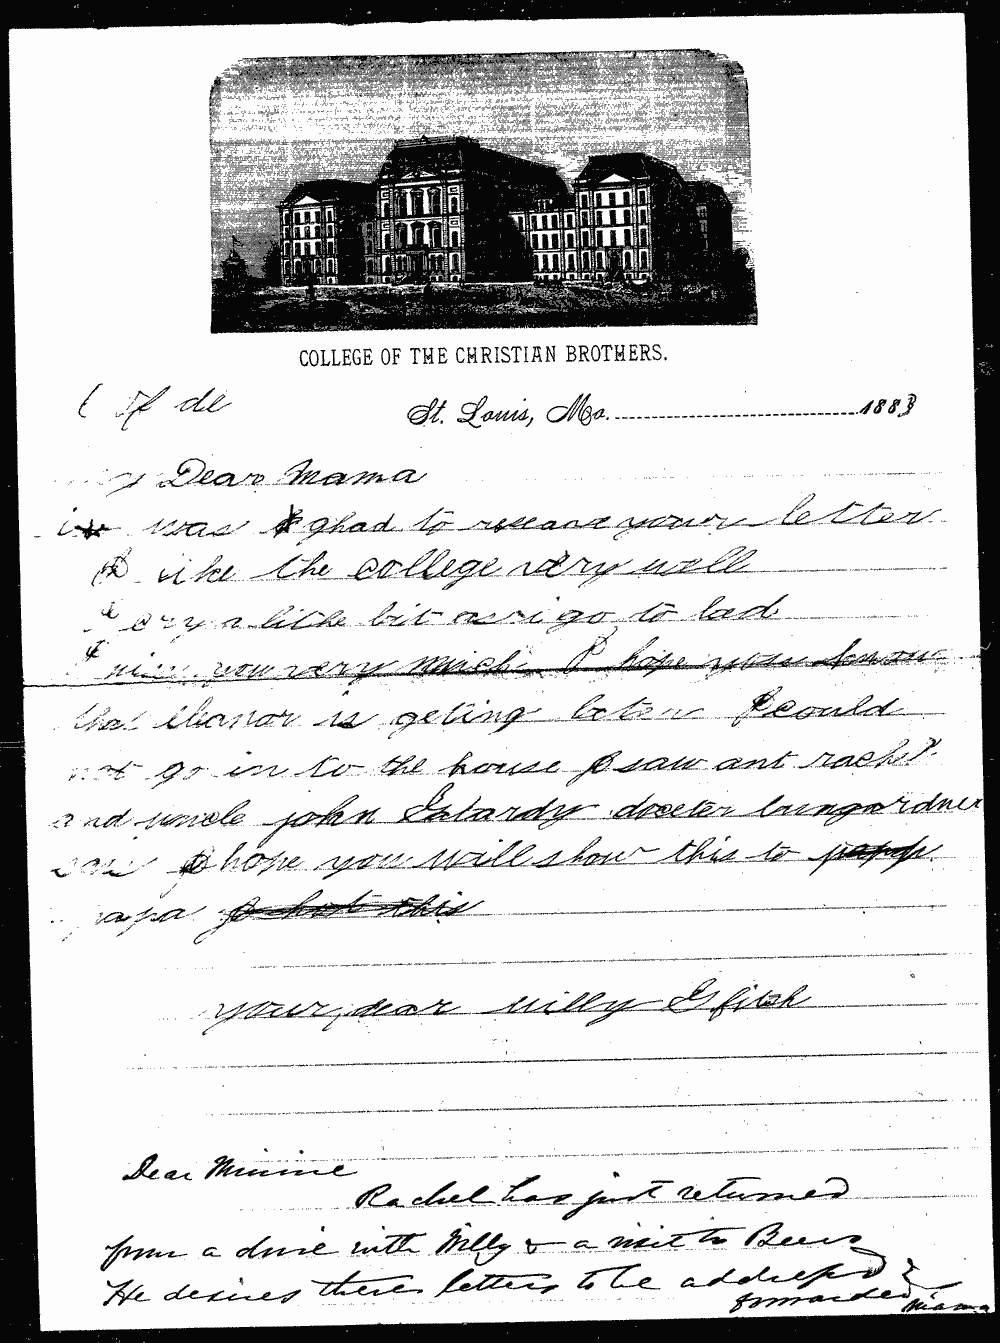 COLLEGE OF THE CHRISTIAN BROTHERS.
St. Louis, Mo. 1883
( If de
Dear Mama
was ghad to your letter
I like the college very well
I cry a litke bit as i go to bad
I miss you very much I hope you know
that eleanor is geting beter I could
not go in to the house I saw ant rachel
and uncle john docter bumgardner
I hope you will show this to papa
papa this
your dear Willy G fitch
Dear Minnie
Rachel has just returned
from a drive with Willy & a visit to Beers
He desires these letters to be addressed &
forwarded Mama